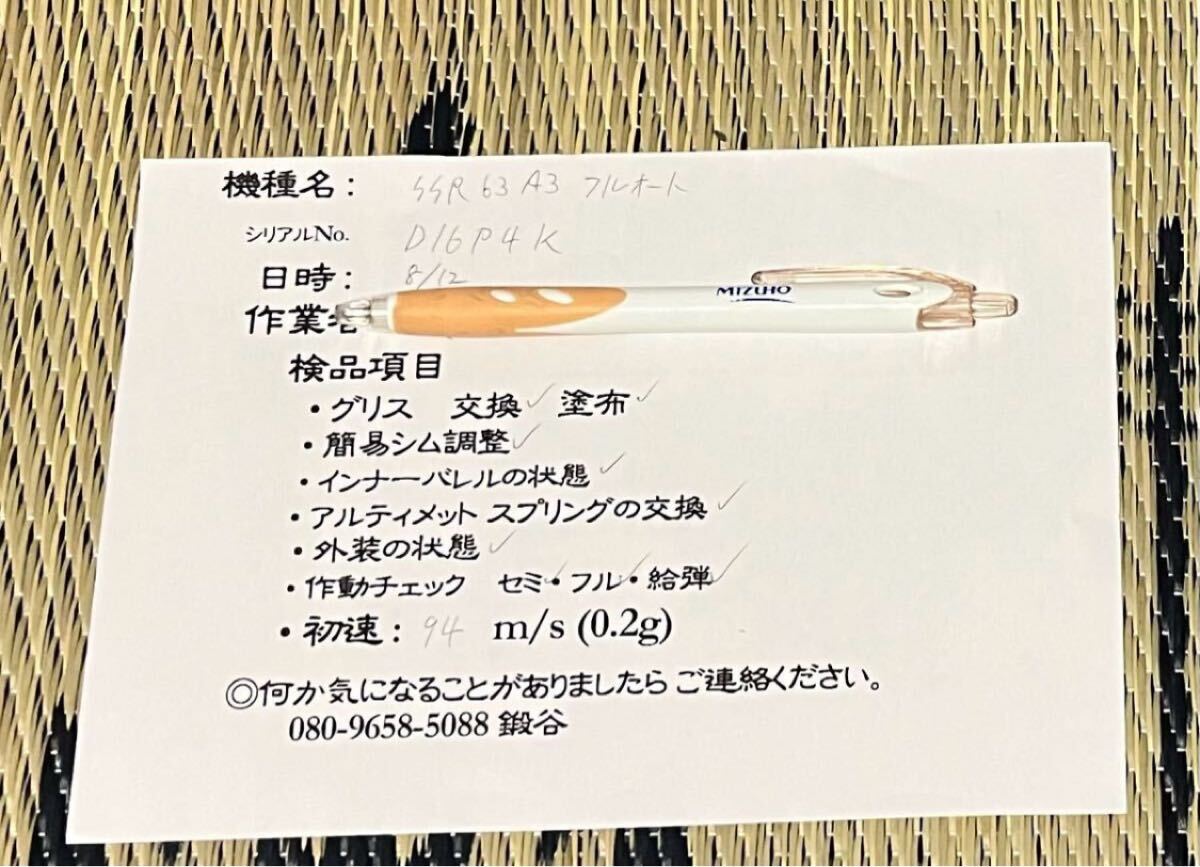 機種名： SSR 63 A3 フルオート
シリアルNo. D16P4K
日時： 8/12
作業者
MIZUHO
検品項目
・グリス 交換✓ 塗布✓
・簡易シム調整✓
・インナーバレルの状態✓
・アルティメット スプリングの交換✓
・外装の状態✓
・作動チェック セミ✓・フル✓・給弾✓
・初速： 94 m/s (0.2g)
◎何か気になることがありましたら ご連絡ください。
080-9658-5088 鍛谷